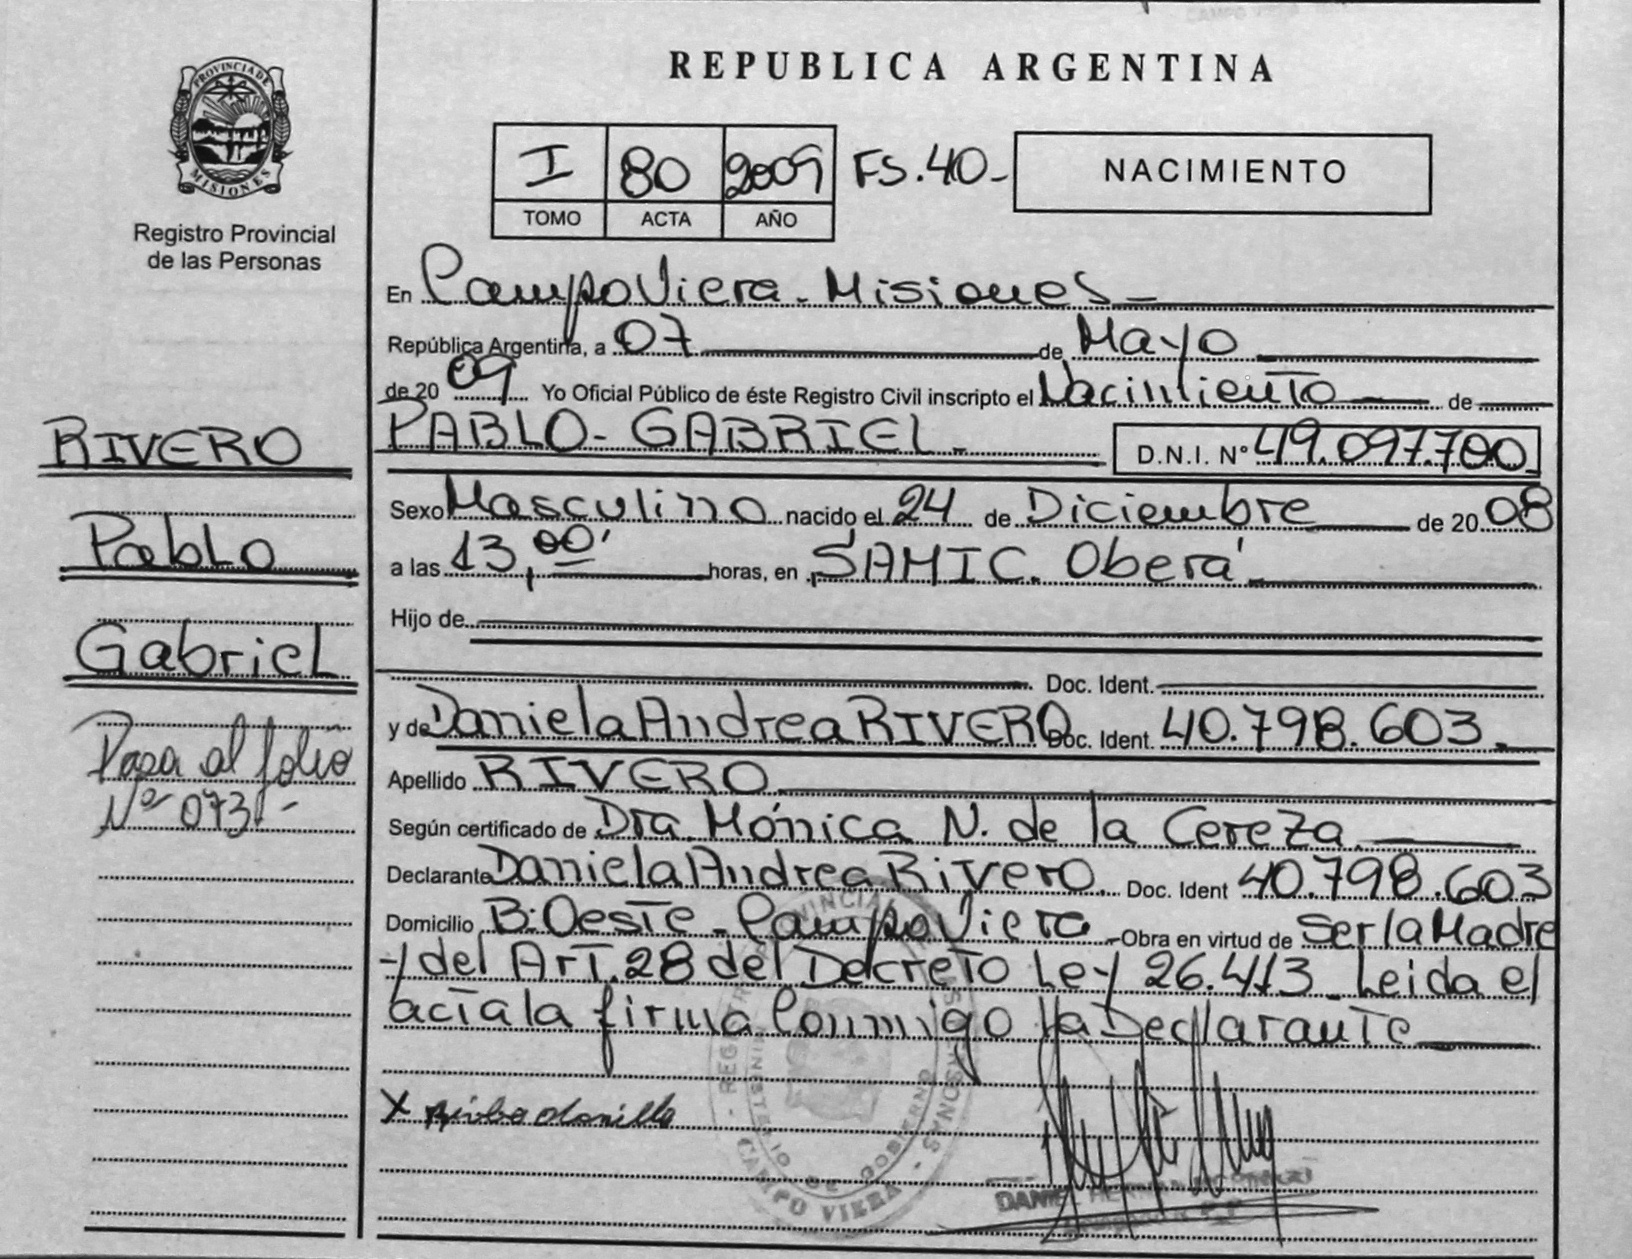 PROVINCIA DE
MISIONES
Registro Provincial
de las Personas
RIVERO
Pablo
Gabriel
Pasa al folio
Nº 073 -
REPUBLICA ARGENTINA
I 80 2009 FS.40-
TOMO ACTA AÑO
NACIMIENTO
En Campo Viera - Misiones -
República Argentina, a 07 de Mayo
de 20 09 Yo Oficial Público de éste Registro Civil inscripto el Nacimiento de
PABLO - GABRIEL - D.N.I. Nº 49.097.700
Sexo Masculino nacido el 24 de Diciembre de 20 08
a las 13,00' horas, en SAMIC. Oberá
Hijo de
Doc. Ident.
y de Daniela Andrea RIVERO Doc. Ident. 40.798.603
Apellido RIVERO
Según certificado de Dra Mónica N. de la Cereza
Declarante Daniela Andrea Rivero. Doc. Ident 40.798.603
Domicilio B:Oeste - Campo Viera - Obra en virtud de Ser la Madre
y del Art. 28 del Decreto Ley 26.413 - Leida el
acta la firma Conmigo la Declarante
X
CAMPO VIERA
MINISTERIO DE GOBIERNO